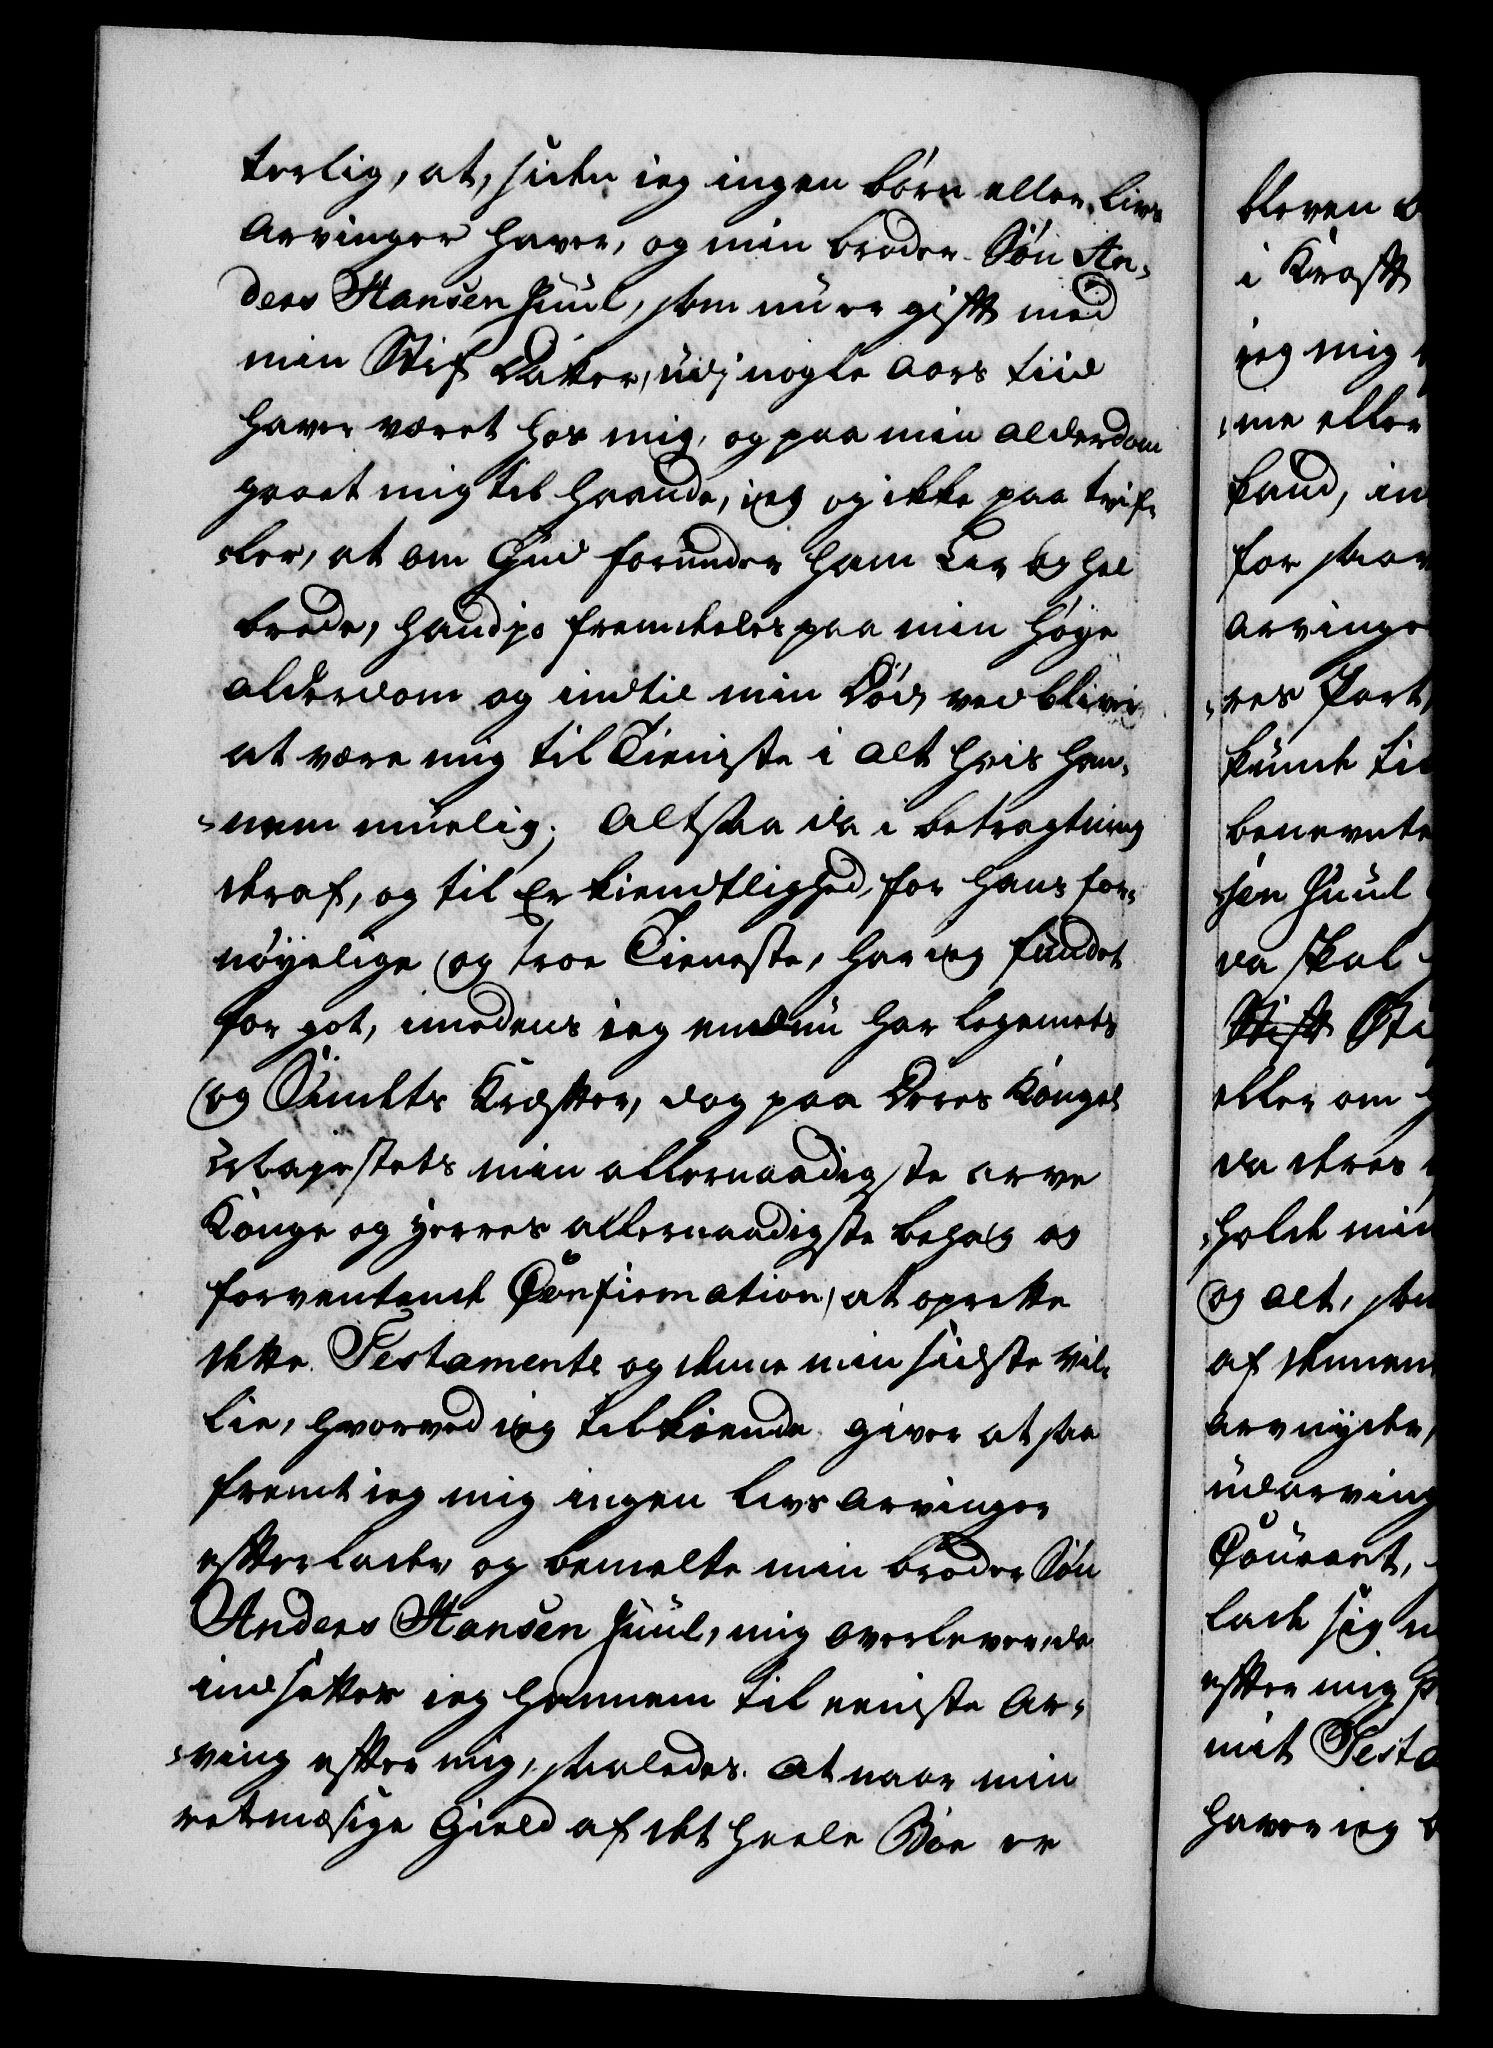 terlig, at, siden jeg ingen børn eller livs
Arvinger haver, og min broder Søn An-
ders Hansen Juul, som nu er gift med
min Stif Dater, udj nogle aars tiid
haver været hos mig, og paa min alderdom
gaaet mig til haande, jeg og ikke paa tvif-
ler, at om Gud forunder ham Lev og hel
brede, hand jo fremdeles paa min høye
alderdom og indtil min Død, ved bliver
at være mig til Tieniste i alt hvis han-
nem muelig; Altsaa da i betragtning
deraf, og til Erkiendtlighed for hans for-
nøyelige og troe Tieneste, har jeg fundet
for got, imedens jeg endnu har legemets
og Sindets Kræfter, dog paa Deres Kongel
Mayestets min allernaadigste arve
Konge og Herres allernaadigste behag og
forventende Confirmation, at oprette
dette Testamente og denne min sidste Vil-
lie, hvorved jeg tilkiende giver at saa
fremt jeg mig ingen livs Arvinger
efterlader og bemelte min broder Søn
Anders Hansen Juul, mig overlever, da
indsetter jeg hannem til eeniste Ar-
ving efter mig, saaledes. at naar min
retmæsige Gield af det heele Boe er
bleven
i Kraft
jeg mig
me eller
kand,
for
Arvinge
res Part,
kunde
benevnte
sen Juul
da skal
Stift
eller om
da deres
holde min
og alt,
af
arv nyder,
udarving
Courant,
lade sig
efter mig
mit Testa
haver jeg